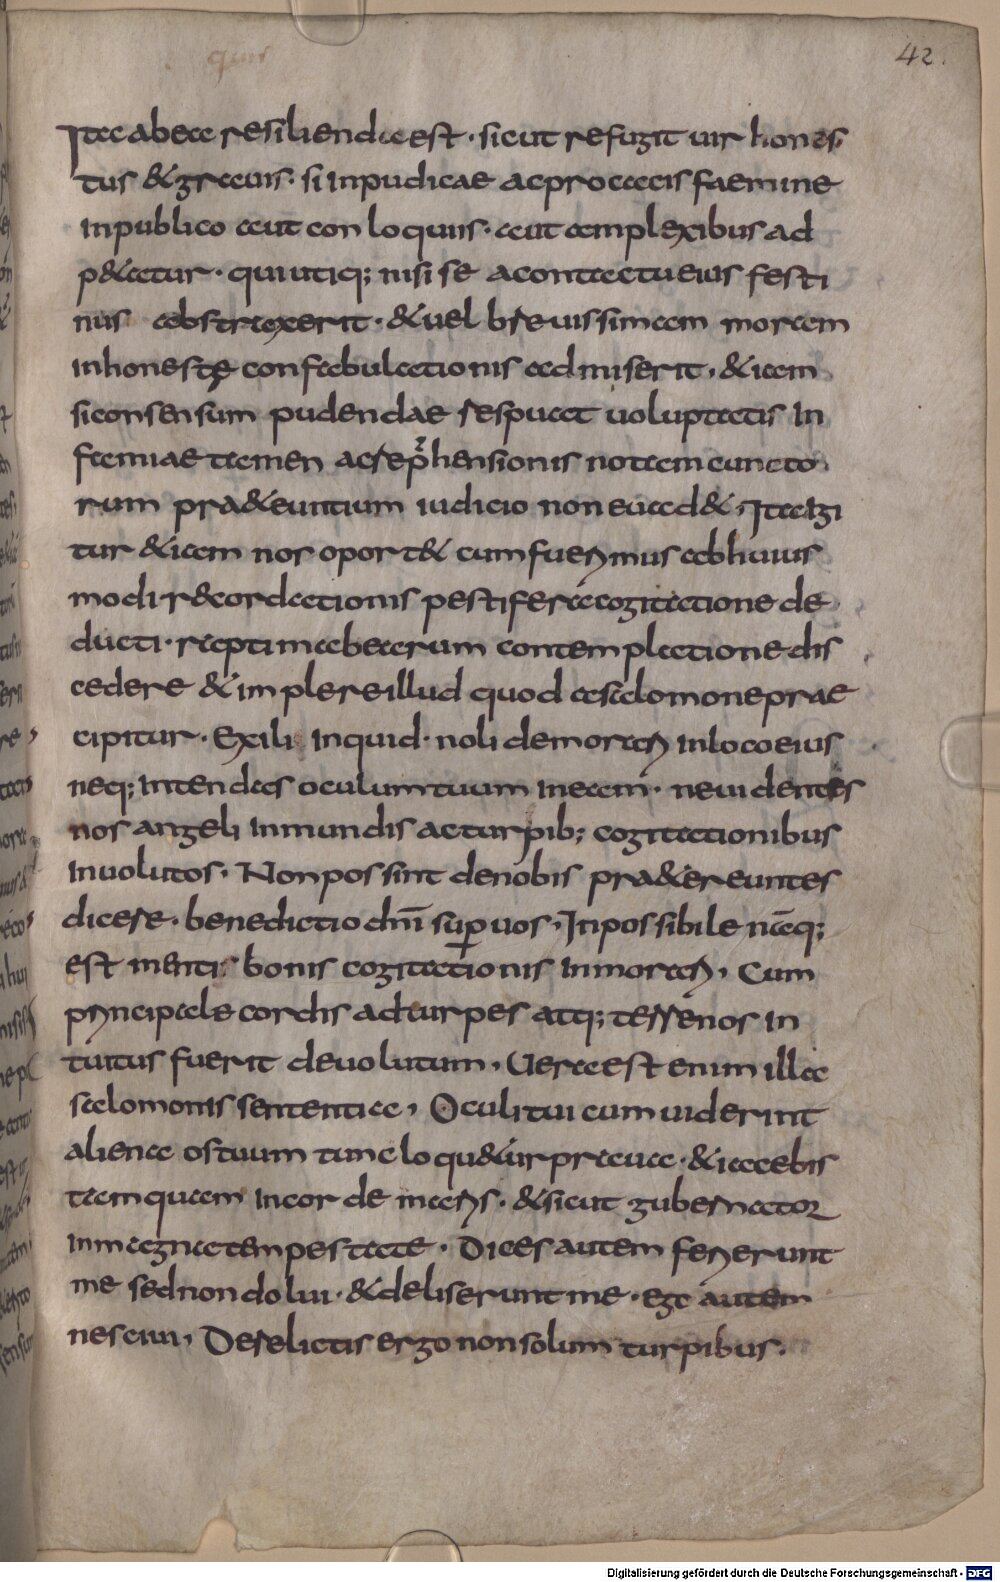 quis
42.
Ita ab ea resiliendũ est · sicut refugit uir hones
tus & grauis · si inpudicae ac procacis faemine
inpublico aut conloquiis · aut amplexibus ad
p&atur · qui utiq; nisi se a contactu eius festi
nus abstraxerit · & uel breuissimam moram
inhonestę confabulationis admiserit, & iam
si consensum pudendae respuat uoluptatis in
famiae tamen ac rep̃hensionis notam cuncto
rum pra&euntium iudicio non euad& , Ita igi
tur & iam nos oport& cum fuerimus ab huius
modi r&cordationis pestifera cogitatione de
ducti · raptim ab earum contemplatione dis
cedere & implere illud quod a salomone prae
cipitur · Exili inquid · noli demorari in loco eius
neq; intendas oculum tuum in eam · ne uidentes
nos angeli inmundis ac turpib; cogitationibus
inuolutos · Non possint de nobis pra&ereuntes
dicere · benedictio dñi super uos , Inpossibile náq;
est menti bonis cogitationis inmorari , Cum
principale cordis ad turpes atq; terrenos in
tuitus fuerit deuolutum , Uera est enim illa
salomonis sententia , Oculi tui cum uiderint
alienā os tuum tunc loqu&ur praua · & iacebis
tamquam in corde maris · & sicut gubernator
in magna tempestate · Dices autem ferierunt
me sed non dolui · & deliserunt me · ego autem
nesciui , Derelictis ergo non solum turpibus ·
Digitalisierung gefördert durch die Deutsche Forschungsgemeinschaft - DFG